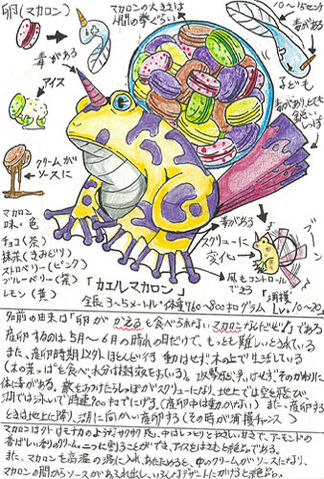 卵(マカロン)
毒がある
マカロンの大きさは
人間の拳ぐらい
10〜15センチ
毒がある
子ども
毒があり、とても
しっぽ
アイス
クリームが
ソースに
マカロン
味・色
チョコ(茶)
抹茶(きみどり)
ストロベリー(ピンク)
ブルーベリー(紫)
レモン(黄)
毒がある
スクリューに
変化
ブーン
風もコントロール
できる
「カエルマカロン」
全長3〜5メートル・体重760〜800キログラム
「捕獲」
Lv.10〜20
名前の由来は「卵がかえると食べられないマカロンなんだぜ!」である
産卵するのは5月〜6月の晴れの日だけで、もっとも難しいとされている
また、産卵時期以外ほとんど動けず木の上で生活している
(木の葉っぱを食べ、水分は
体に毒がある。敵をみつけたらしっぽがスクリューになり、地上では空を飛び、
湖では泳いで時速900キロでにげる(産卵中は動かない) また、産卵する
ときは地上に降り、湖に向かい産卵する(その時が捕獲チャンス)
マカロンは外はモナカのようにサクサク、中はしっとりとやさしい甘さで、アーモンドの
香ばしい香りのクリーム
また、マカロンを高温の湯に入れ、あたためると、中のクリームがソースになり、
マカロンの間からソースがあふれ出し、